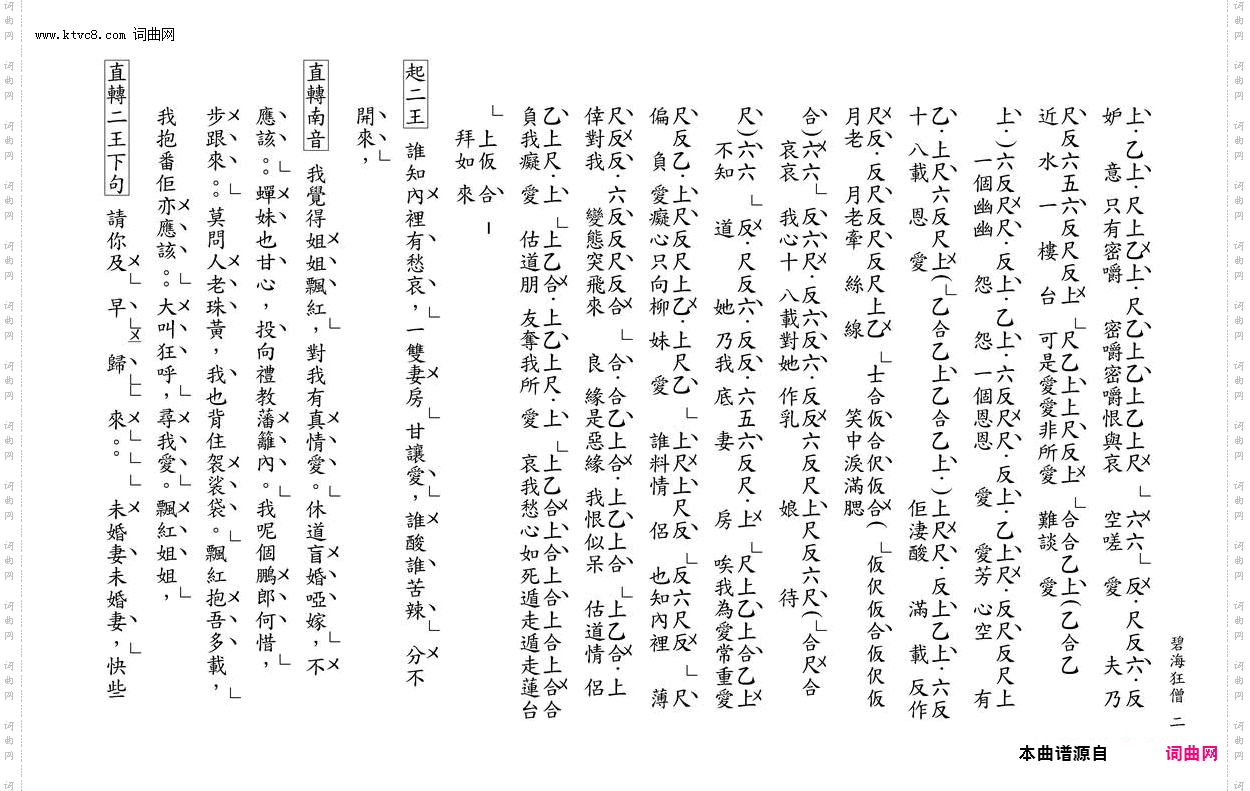 www.ktvc8.com 词曲网
碧海狂僧 二
上·乙上·尺上乙上·尺乙上乙上乙上尺 六六 反·尺反六·反
妒 意 只有密嚼 密嚼密嚼恨與哀 空嗟 愛 夫乃
尺反六五六反尺反上 尺乙上上尺反上 合合乙上(乙合乙
近 水 一 樓 台 可是愛愛非所愛 難談 愛
上·)六反尺尺·反上·乙上·六反尺尺·反上·乙上尺·反尺反尺上
一個幽幽 怨 怨 一個恩恩 愛 愛芳 心空 有
乙·上尺六反尺上(乙合乙上乙合乙上·)上尺尺·反上乙上·六反
十 八載 恩 愛 佢淒酸 滿 載 反作
尺反·反尺反尺反尺上乙 士合仮合伬仮合(仮伬仮合仮伬仮
月老 月老牽 絲 線 笑中淚滿腮
合)六六 反·六尺·反六反六·反反六反尺上尺反六尺(合尺合
哀哀 我心十 八載對她 作乳 娘 待
尺)六六 反·尺反六·反反·六五六反尺·上 尺上乙上合乙上
不知 道 她乃我底 妻 房 唉我為愛常重愛
尺反乙·上尺反尺上乙·上尺乙 上尺上尺反 反六尺反 尺
偏 負 愛癡心只向柳 妹 愛 誰料情 侶 也知內裡 薄
尺反反·六反反尺反合 合·合乙上合·上乙上合 上乙合·上
倖對我 變態突飛來 良 緣是惡緣 我恨似呆 估道情 侶
乙上尺·上 上乙合·上乙上尺·上 上乙合上合上合上合上合合
負我癡 愛 估道朋 友奪我所 愛 哀我愁心如死遁走遁走蓮台
上仮合 —
拜如來
起二王 誰知內裡有愁哀,一雙妻房 甘讓愛,誰酸誰苦辣 分不
開來,
直轉南音 我覺得姐姐飄紅,對我有真情愛。休道盲婚啞嫁,不
應該。。蟬妹也甘心,投向禮教藩籬內。我呢個鵬郎何惜,
步跟來。。莫問人老珠黃,我也背住袈裟袋。飄紅抱吾多載,
我抱番佢亦應該。。大叫狂呼,尋我愛。飄紅姐姐,
直轉二王下句 請你及 早 歸 來。。 未婚妻未婚妻,快些
本曲谱源自 词曲网